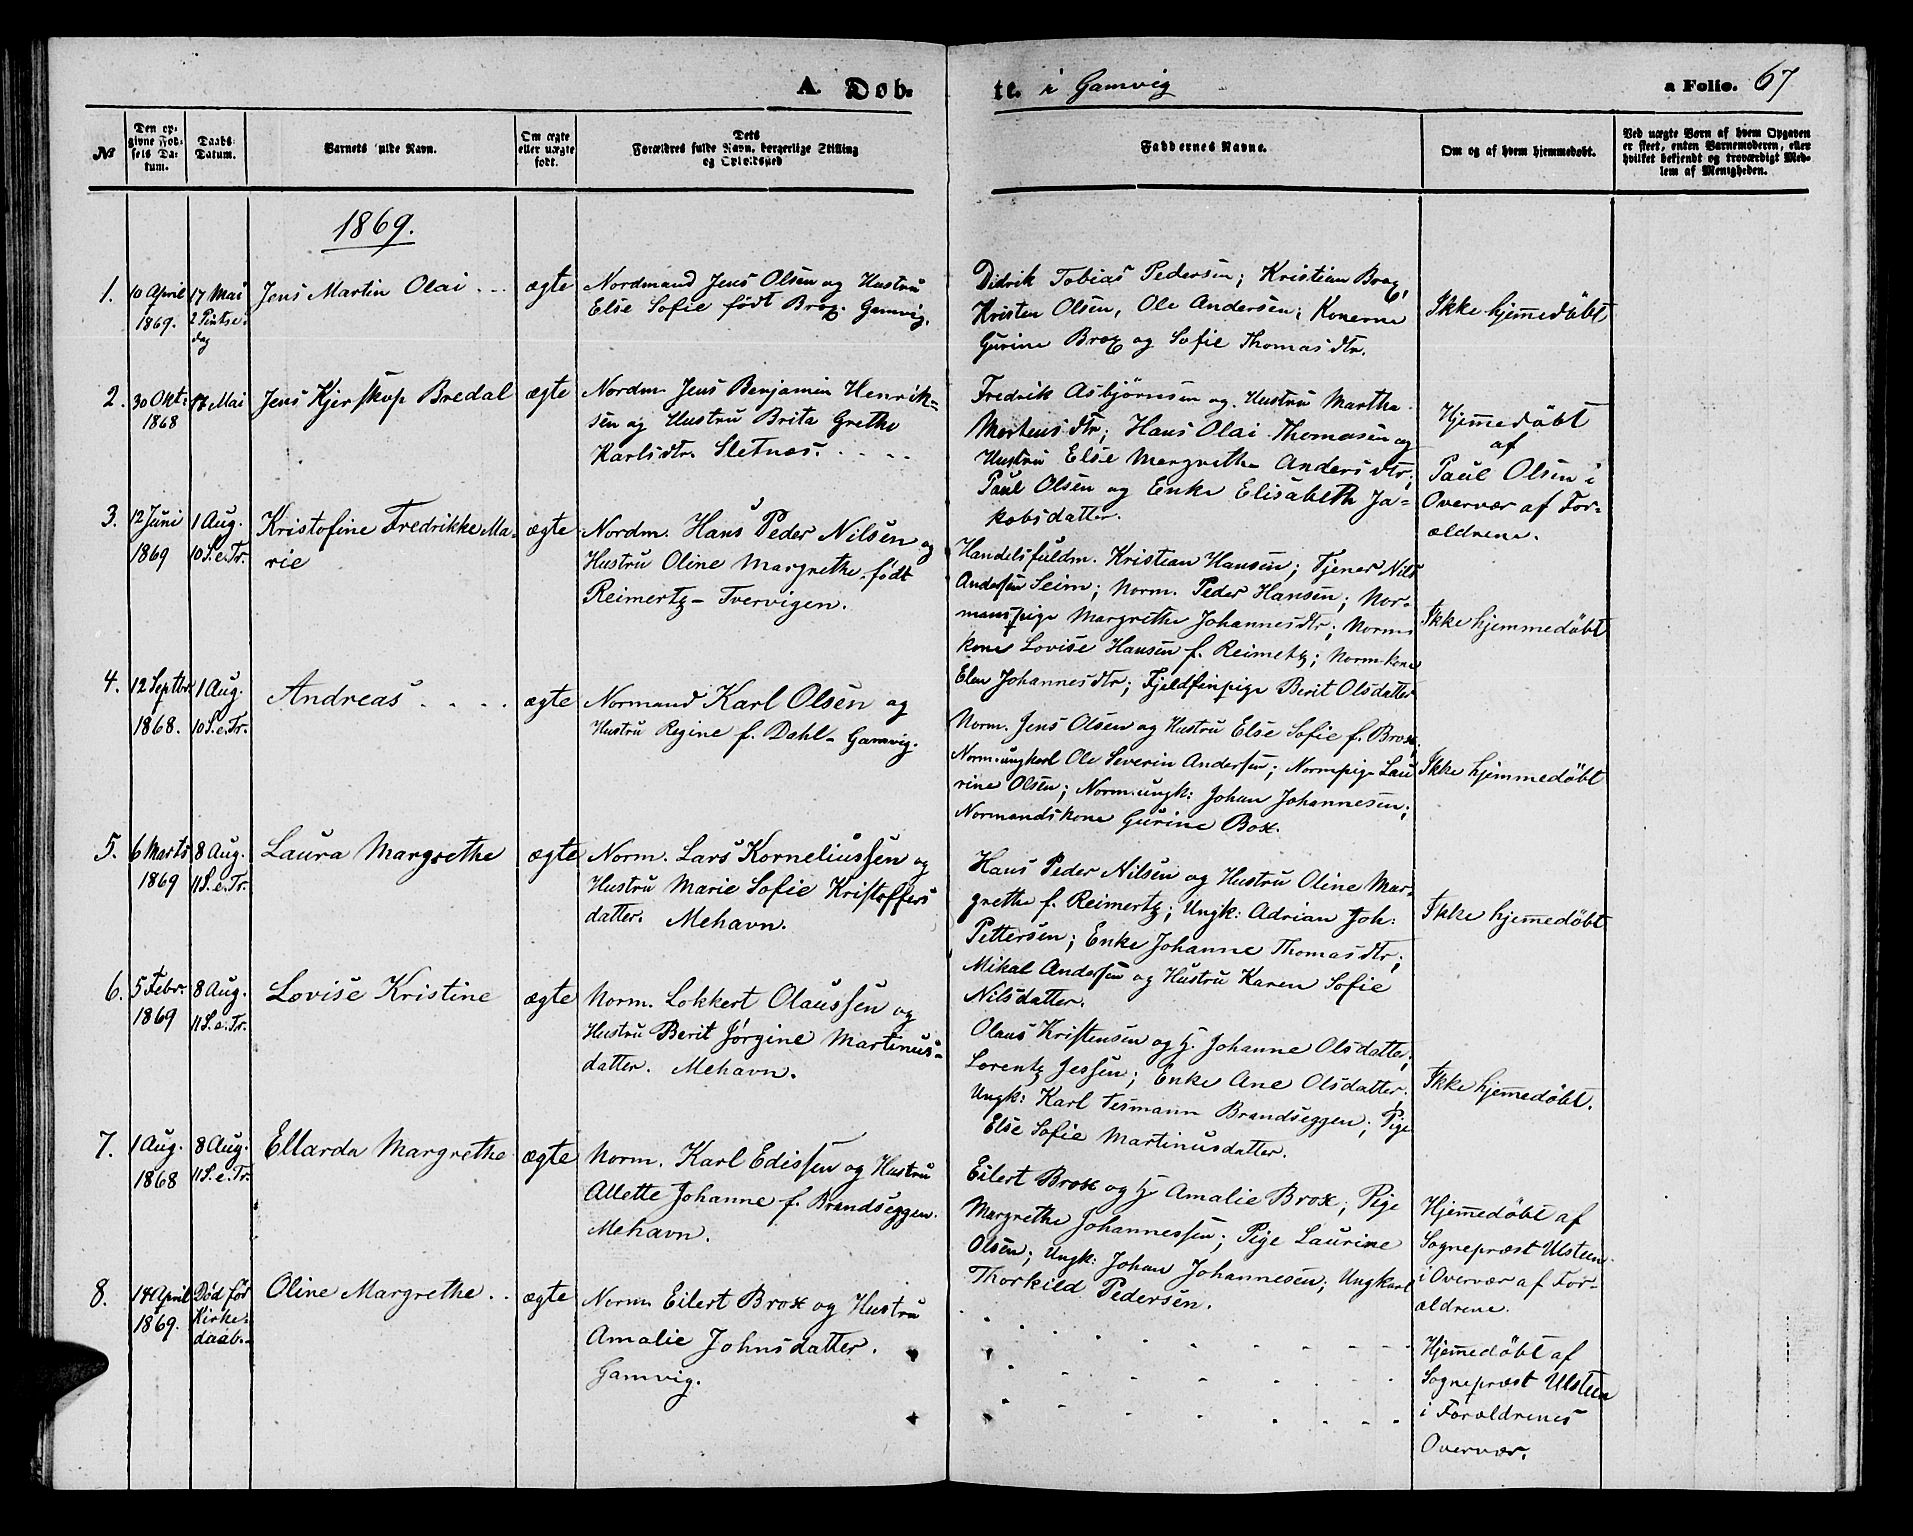 A. Døb-
te. i Gamvig
a Folio. 67
№
Den op-
givne Fød-
sels Da-
tum.
Daabs-
Datum.
Barnets fulde Navn.
Om ægte
eller uægte
født.
Dets
Forældres fulde Navn, borgerlige Stilling
og Opholdssted
Faddernes Navne.
Om og af hvem hjemmedøbt.
Ved uægte Børn af hvem Opgaven
er skeet, enten Barnemoderen, eller
hvilket bekjendt og troværdigt Med-
lem af Menigheden.
1869.
1.
10 April
1869.
17 Mai
2 Pintse-
dag
Jens Martin Olai
ægte
Nordmand Jens Olsen og Hustru
Else Sofie født Brox. Gamvig.
Didrik Tobias Pedersen; Kristian Brox,
Kristen Olsen, Ole Andersen; Konerne
Gurine Brox og Sofie Thomasdtr.
Ikke hjem̄edøbt
2.
30 Okt:
1868
17 Mai
Jens Kjerskop Bredal
ægte
Nordm. Jens Benjamin Henrik-
sen og Hustru Brita Grethe
Karlsdtr. Sletnæs.
Fredrik Asbjørnsen og Hustru Marthe
Mortensdtr; Hans Olai Thomasen og
Hustru Else Margrethe Andersdtr;
Paul Olsen og Enke Elisabeth Ja-
kobsdatter.
Hjem̄edøbt
af
Paul Olsen i
Overvær af For-
ældrene.
3.
12 Juni
1869
1 Aug.
10 S. e. Tr.
Kristofine Fredrikke Ma-
rie
ægte
Nordm. Hans Peder Nilsen og
Hustru Oline Margrethe født
Reimertz - Tvervigen.
Handelsfuldm. Kristian Hansen; Tjener Nils
Andersen Seim; Norm. Peder Hansen; Nor-
manspige Margrethe Johannesdtr; Norms
kone Lovise Hansen f. Reimertz; Norm-kone
Elen Johannesdtr; Fjeldfinpige Berit Olsdatter
Ikke hjemmedøbt
4.
12 Septbr.
1868.
1 Aug.
10 S. e. Tr.
Andreas
ægte
Normand Karl Olsen og
Hustru Regine f. Dahl - Gamvig.
Norm. Jens Olsen og Hustru Else Sofie f. Brox;
Norm.ungkarl Ole Severin Andersen; Normpige Lau
rine Olsen; Norm.ungk: Johan Johannesen;
Normandskone Gurine Box.
Ikke hjemmedøbt
5.
6 Marts
1869
8 Aug.
11 S. e. Tr.
Laura Margrethe
ægte
Norm. Lars Korneliussen og
Hustru Marie Sofie Kristoffers
datter. Mehavn.
Hans Peder Nilsen og Hustru Oline Mar-
grethe f. Reimertz; Ungk: Adrian Joh:
Pettersen; Enke Johanne Thomasdtr;
Mikal Andersen og Hustru Karen Sofie
Nilsdatter.
Ikke hjem̄edøbt
6.
5 Febr.
1869
8 Aug.
11 S. e. Tr.
Lovise Kristine
ægte
Norm. Lokkert Olaussen og
Hustru Berit Jørgine Martinus-
datter. Mehavn.
Olaus Kristensen og H. Johanne Olsdatter;
Lorentz Jessen; Enke Ane Olsdatter;
Ungk: Karl Tesmann Brandseggen; Pige
Else Sofie Martinusdatter.
Ikke hjem̄edøbt.
7.
1 Aug.
1868
8 Aug.
11 S. e. Tr.
Ellarda Margrethe
ægte
Norm. Karl Edissen og Hustru
Allette Johanne f. Brandseggen.
Mehavn.
Eilert Brox og H Amalie Brox; Pige
Margrethe Johannessen; Pige Laurine
Olsen; Ungk: Johan Johannesen; Ungkarl
Thorkild Pedersen.
Hjem̄edøbt af
Sognepræst Ulsteen
i Overvær af For-
ældrene.
8.
14 April
1869.
Død før
Kirke-
daab.
Oline Margrethe
ægte
Norm. Eilert Brox og Hustru
Amalie Johnsdatter.
Gamvig.
Hjem̄edøbt af
Sognepræst Ulsteen
i Forældrenes
Overvær.